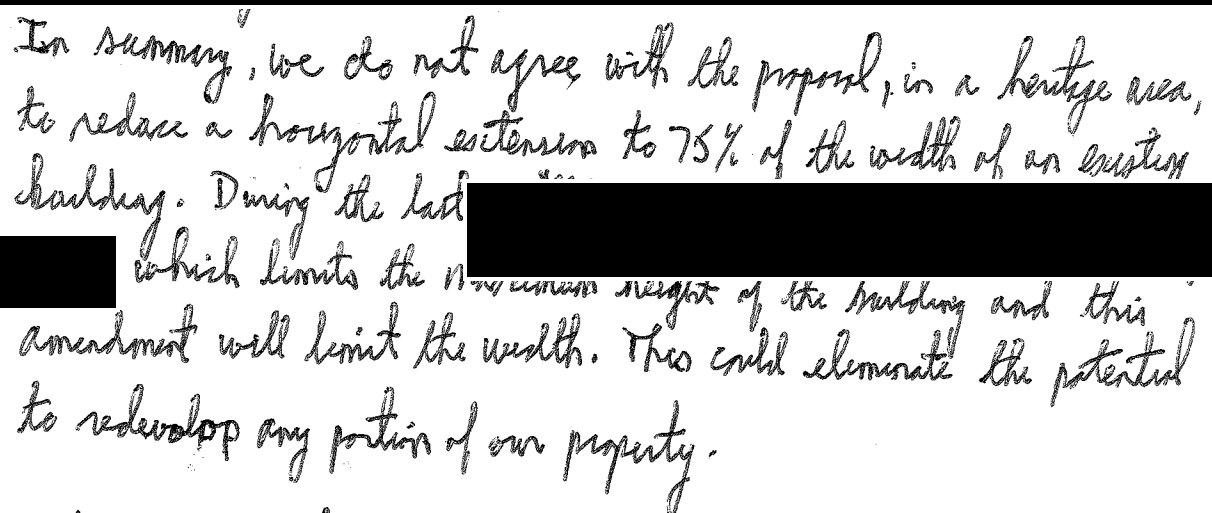 In summary, we do not agree with the proposal, in a heritage area,
to reduce a horizontal extension to 75% of the width of an existing
building. During the last
which limits the maximum height of the building and this
amendment will limit the width. This could eliminate the potential
to redevelopp any portion of our property.